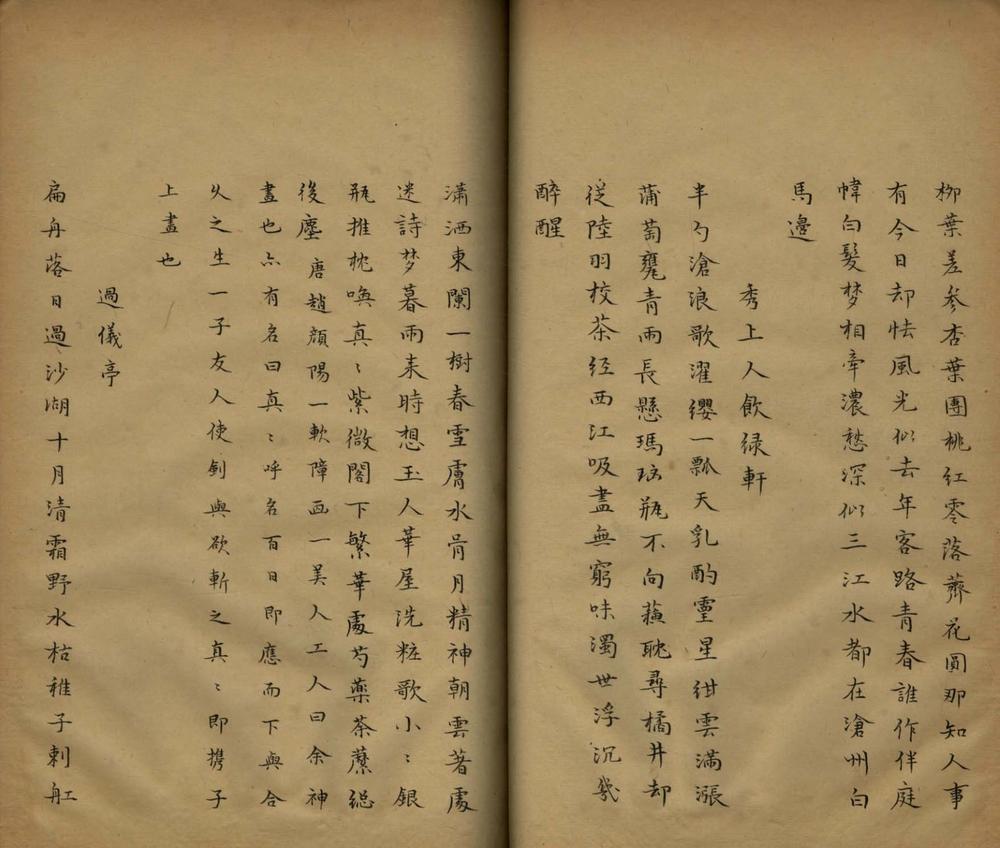 柳葉差參杏葉團桃紅零落薺花圓那知人事
有今日却怯風光似去年客路青春誰作伴庭
幃白髮梦相牵濃愁深似三江水都在滄州白
馬邊
秀上人飲绿軒
半勺滄浪歌濯纓一瓢天乳酌靈星紺雲滿漲
蒲萄甕青雨長懸瑪瑙瓶不向蘓耽尋橘井却
従陸羽校茶经西江吸盡無窮味濁世浮沉幾
醉醒
瀟洒東闌一樹春雪膚氷骨月精神朝雲著處
迷詩梦暮雨来時想玉人華屋洗粧歌小〻銀
瓶推枕喚真〻紫微閣下繁華處芍藥荼蘼総
後塵 唐趙顔陽一軟障画一美人工人曰余神
畫也亦有名曰真〻呼名百日即應而下與合
乆之生一子友人使劍與欲斬之真〻即携子
上畫也
過儀亭
扁舟落日過沙湖十月清霜野水枯稚子刺舡